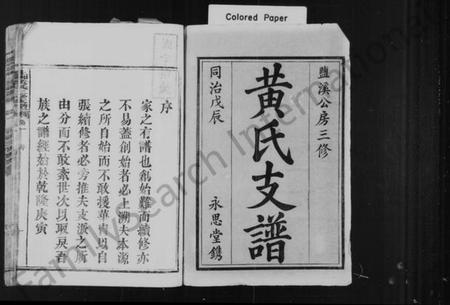 Colored Paper
鹽溪公房三修
黃氏支譜
同治戊辰
永思堂鐫
序
家之有譜也創始難而續修亦
不易蓋創始者必上溯夫本源
之所自始而不敢援華胄以自
張續修者必旁推夫支派之所
由分而不敢紊世次以取戾吾
族之譜經始於乾隆庚寅
FamilySearch International